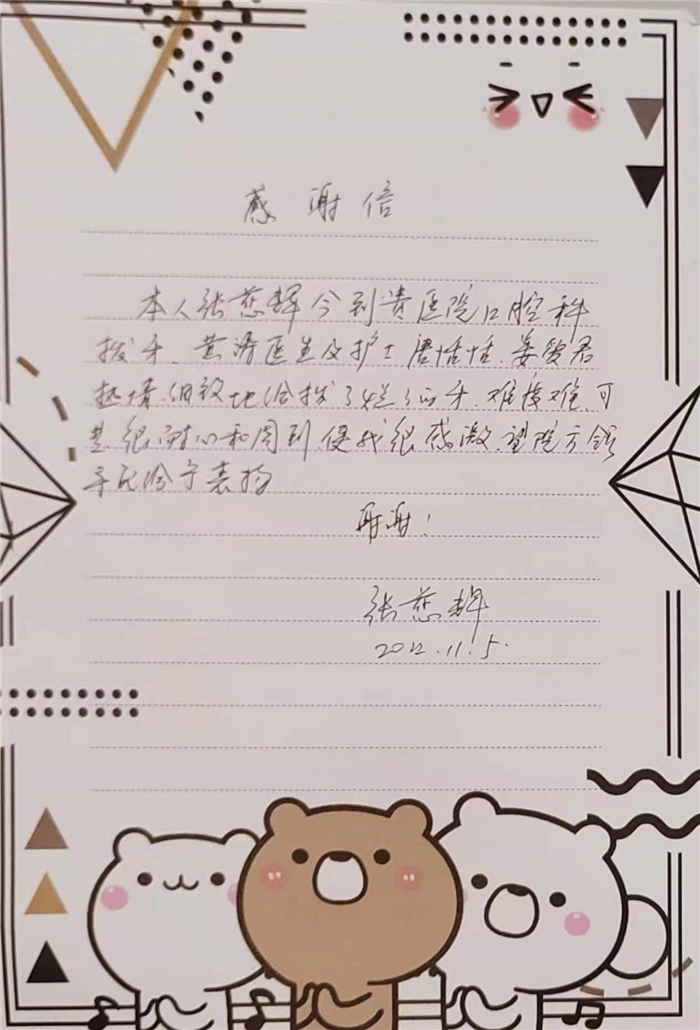 感谢信
本人张慈辉今到贵医院口腔科
拔牙、黄涛医生及护士唐恬恬、姜贺君
热情、细致地给拔了烂了的牙、难度难、可
是很耐心和周到、使我很感激、望院方领
导能给予表扬
谢谢!
张慈辉
2022.11.5.